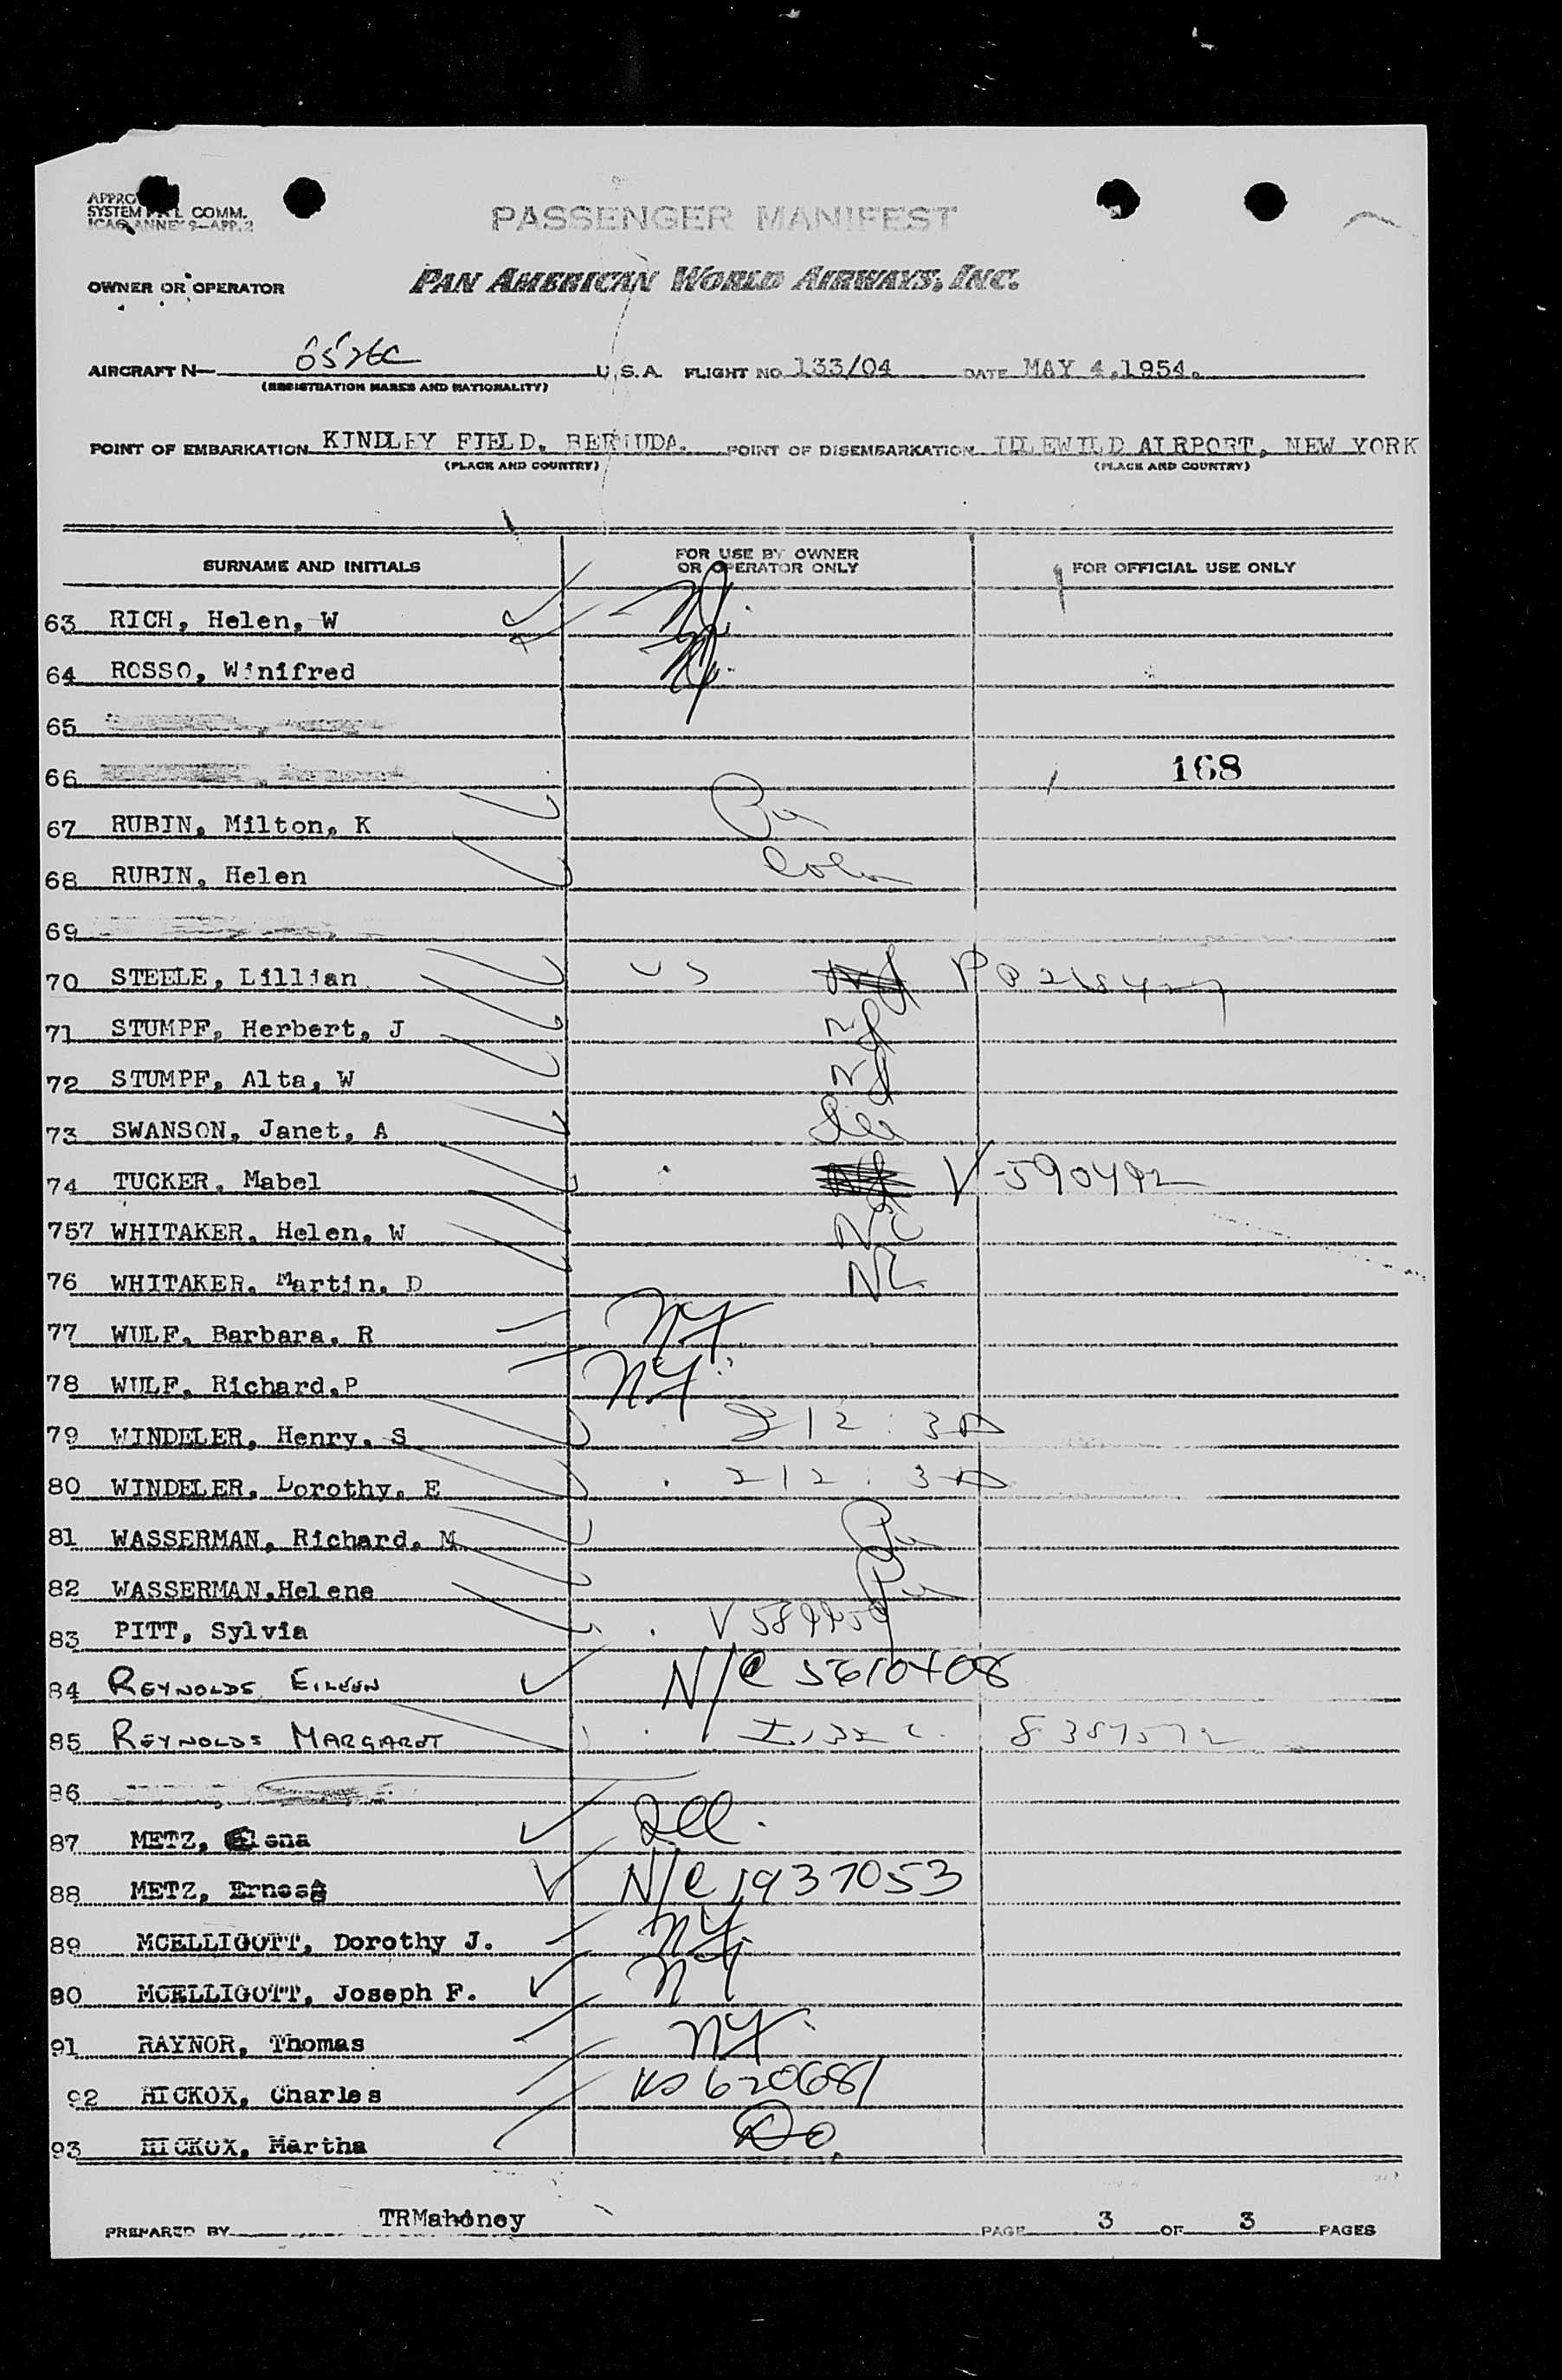 SYSTEM COMM.
PASSENGER MANIFEST
OWNER OR OPERATOR PAN AMERICAN WORLD AIRWAYS, INC.
AIRCRAFT N— U.S.A. FLIGHT NO 133/04 DATE MAY 4,1954.
(REGISTRATION MARKS AND NATIONALITY)
POINT OF EMBARKATION KINDLEY FIELD, BERMUDA. POINT OF DISEMBARKATION IDLEWILD AIRPORT, NEW YORK
(PLACE AND COUNTRY) (PLACE AND COUNTRY)
SURNAME AND INITIALS FOR USE BY OWNER OR OPERATOR ONLY FOR OFFICIAL USE ONLY
63 RICH, Helen, W NY
64 ROSSO, Winifred NY
65
66 168
67 RUBIN, Milton, K
68 RUBIN, Helen
69
70 STEELE, Lillian US
71 STUMPF, Herbert, J NY
72 STUMPF, Alta, W NY
73 SWANSON, Janet, A
74 TUCKER, Mabel V-590492
757 WHITAKER, Helen, W NC
76 WHITAKER, Martin, D NC
77 WULF, Barbara, R NY
78 WULF, Richard,P NY
79 WINDELER, Henry, S 212:3
80 WINDELER, Dorothy, E 212:3
81 WASSERMAN, Richard, M
82 WASSERMAN,Helene
83 PITT, Sylvia
84 REYNOLDS EILEEN N/C 5610408
85 REYNOLDS MARGARET
86
87 METZ, Elena Ill.
88 METZ, Ernest N/C 1937053
89 MCELLIGOTT, Dorothy J. NY
90 MCELLIGOTT, Joseph F. NY
91 RAYNOR, Thomas NY
92 HICKOX, Charles 620681
93 HICKOX, Martha Do.
PREPARED BY TRMahoney PAGE 3 OF 3 PAGES